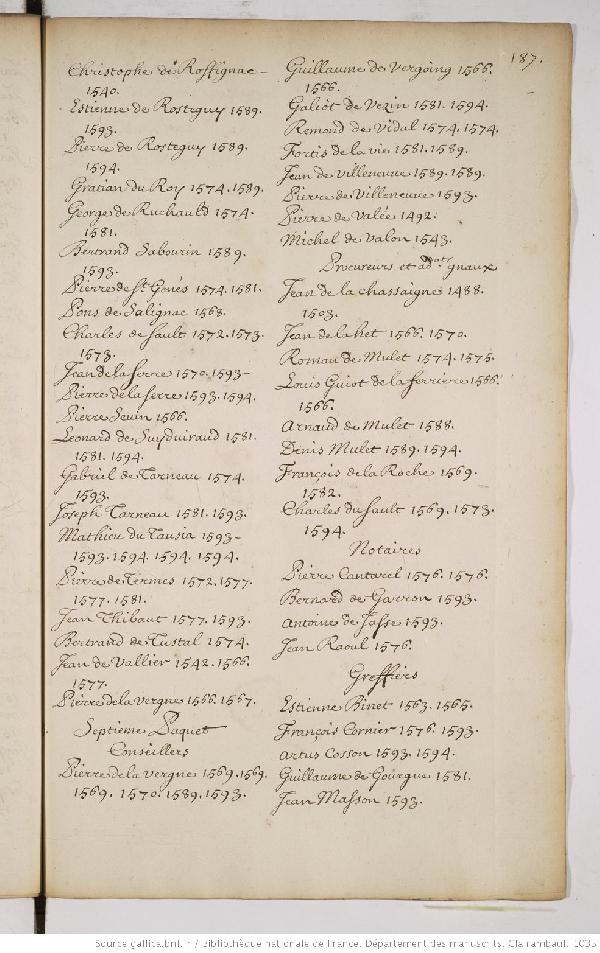 187.
Christophe de Roffignac -
1540.
Estienne de Rosteguy 1589.
1593.
Pierre de Rosteguy 1589.
1594.
Gratian du Roy 1574. 1589.
George de Ruchauld 1574.
1581.
Bertrand Sabourin 1589.
1593.
Pierre de St. Gonés 1574. 1581.
Pons de Salignac 1568.
Charles de Sault 1572. 1573.
1573.
Jean de la Serre 1570. 1593-
Pierre de la Serre 1593. 1594.
Pierre Seuin 1566.
Leonard de Suyduiraud 1581.
1581. 1594.
Gabriel de Tarneau 1574.
1593.
Joseph Tarneau 1581. 1593.
Mathieu du Tausia 1593-
1593. 1594. 1594. 1594.
Pierre de Termes 1572. 1577.
1577. 1581.
Jean Thibaut 1577. 1593.
Bertrand de Tustal 1574.
Jean de Vallier 1542. 1566.
1577.
Pierre de la Vergne 1566. 1567.
Septieme Paquet
Conseillers
Pierre de la Vergne 1569. 1569.
1569. 1570. 1589. 1593.
Guillaume de Vergoing 1566.
1566.
Galiot de Vezin 1581. 1594.
Remond de Vidal 1574. 1574.
Fortis de la vie 1581. 1589.
Jean de Villeneuue 1589. 1589.
Pierre de Villeneuue 1593.
Pierre de Valée 1492.
Michel de Valon 1543.
Procureurs et gnaux
Jean de la Chassaigne 1488.
1503.
Jean de la het 1566. 1570.
Roman de Mulet 1574. 1575.
Louis Guiot de la ferriere 1566.
1566.
Arnaud de Mulet 1588.
Denis Mulet 1589. 1594.
François de la Roche 1569.
1582.
Charles du Sault 1569. 1573.
1594.
Notaires
Pierre Cantarel 1576. 1576.
Bernard de Garron 1593.
Antoine de Josse 1593.
Jean Raoul 1576.
Greffiers
Estienne Binet 1563. 1565.
François Cornier 1576. 1593.
Artus Cosson 1593. 1594.
Guillaume de Gourgue 1581.
Jean Masson 1593.
Source gallica.bnf.fr / Bibliothèque nationale de France. Département des manuscrits. Clairambault 1035